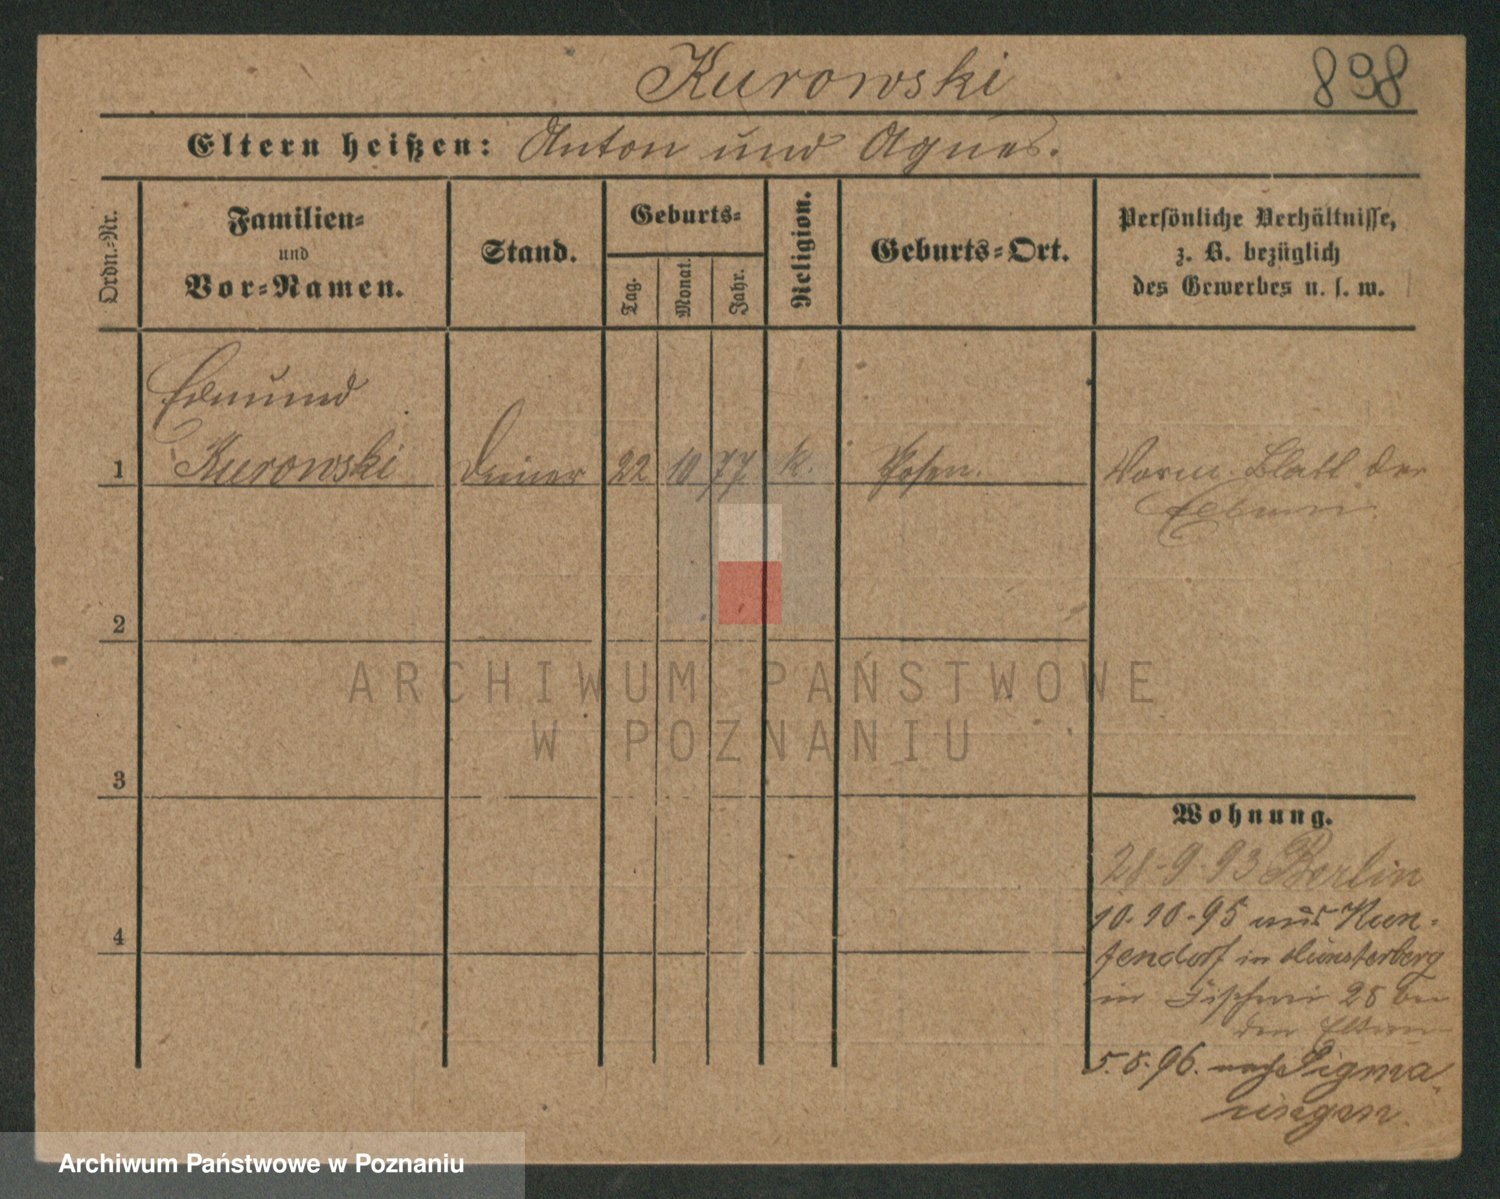 Kurowski 898
Eltern heißen: Anton und Agnes.
Ordn.-Nr.
Familien-
und
Vor-Namen.
Stand.
Geburts-
Tag.
Monat.
Jahr.
Religion.
Geburts-Ort.
Persönliche Verhältnisse,
z. B. bezüglich
des Gewerbes u. s. w.
Edmund
1 Kurowski Diener 22 10 77 k. Posen. Vorm. Blatt der
Eltern
2
3
4
Wohnung.
28-9-93 Berlin
10-10-95 aus Kun-
zendorf in Münsterberg
in 28 bei
den Eltern
5.8.96. nach Sigma-
ringen.
ARCHIWUM PAŃSTWOWE
W POZNANIU
Archiwum Państwowe w Poznaniu